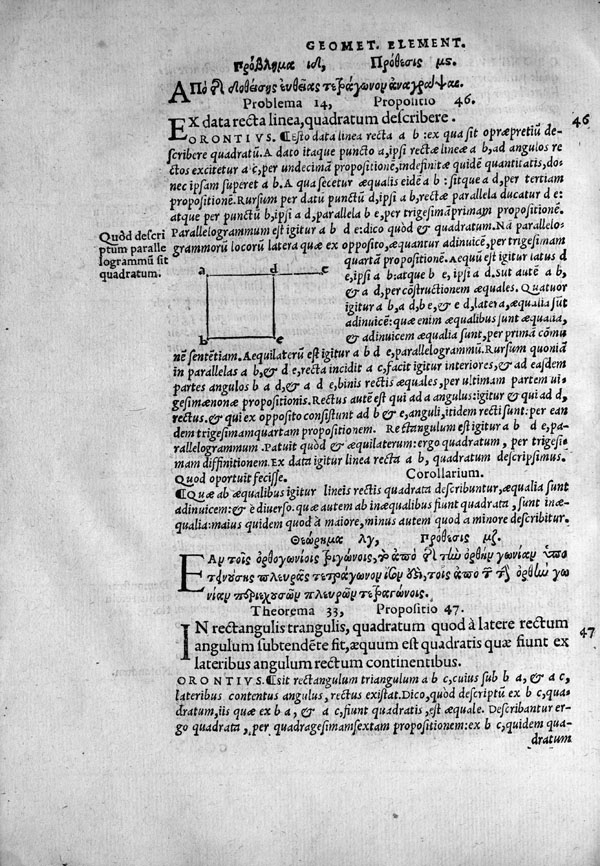 GEOMET. ELEMENT.
Πρόβλημα ιδ, Πρόθεσις μϛ.
ΑΠὸ τῆς δοθείσης εὐθείας τετράγωνον ἀναγράψαι.
Problema 14, Propositio 46.
EX data recta linea, quadratum describere.
46
ORONTIVS. ¶Esto data linea recta a b: ex qua sit opræpretiũ de-
scribere quadratũ. A dato itaque puncto a, ipsi rectæ lineæ a b, ad angulos re
ctos excitetur a c, per undecimã propositionẽ, indefinitæ quidẽ quantitatis, do-
nec ipsam superet a b. A qua secetur æqualis eidẽ a b: sitque a d, per tertiam
propositionẽ. Rursum per datũ punctũ d, ipsi a b, rectæ parallela ducatur d e:
atque per punctũ b, ipsi a d, parallela b e, per trigesimãprimam propositionẽ.
Parallelogrammum est igitur a b d e: dico quòd & quadratum. Nã parallelo-
Quòd descri
ptũm paralle
logrammũ sit
quadratum.
grammorũ locorũ latera quæ ex opposito, æquantur adinuicẽ, per trigesimam
quartã propositionẽ. Aequũ est igitur latus d
e, ipsi a b: atque b e, ipsi a d. Sut autẽ a b,
& a d, per cõstructionẽ æquales. Quatuor
igitur a b, a d, b e, & e d, latera, æqualia sũt
adinuicẽ: quæ enim æqualibus sunt æqualia,
& adinuicem æqualia sunt, per primã cõmu
a d c
b e
nẽ sentẽtiam. Aequilaterũ est igitur a b d e, parallelogrammũ. Rursum quoniã
in parallelas a b, & d e, recta incidit a c, facit igitur interiores, & ad easdem
partes angulos b a d, & a d e, binis rectis æquales, per ultimam partem ui-
gesimænonæ propositionis. Rectus autẽ est qui ad a angulus: igitur & qui ad d,
rectus. & qui ex opposito consistunt ad b & e, anguli, itidem recti sunt: per ean
dem trigesimamquartam propositionem. Rectangulum est igitur a b d e, pa-
rallelogrammum. Patuit quòd & æquilaterum: ergo quadratum, per trigesi-
mam diffinitionem. Ex data igitur linea recta a b, quadratum descripsimus.
Quod oportuit fecisse. Corollarium.
¶Quæ ab æqualibus igitur lineis rectis quadrata describuntur, æqualia sunt
adinuicem: & è diuerso. quæ autem ab inæqualibus fiunt quadrata, sunt inæ-
qualia: maius quidem quod à maiore, minus autem quod a minore describitur.
Θεώρημα λγ, Πρόθεσις μζ.
ΕΑν τοῖς ὀρθογωνίοις τριγώνοις, τὸ ἀπὸ τῆς τὴν ὀρθὴν γωνίαν ὑπο
τεινούσης πλευρᾶς τετράγωνον ἴσον ἐστὶ, τοῖς ἀπὸ τῶν τὴν ὀρθὴν γω
νίαν περιεχουσῶν πλευρῶν τετραγώνοις.
Theorema 33, Propositio 47.
IN rectangulis triangulis, quadratum quod à latere rectum
47
angulum subtendẽte fit, æquum est quadratis quæ fiunt ex
lateribus angulum rectum continentibus.
ORONTIVS. ¶Sit rectangulum triangulum a b c, cuius sub b a, & a c,
lateribus contentus angulus, rectus existat. Dico, quòd descriptũ ex b c, qua-
dratum, iis quæ ex b a, & a c, fiunt quadratis, est æquale. Describantur er-
go quadrata, per quadragesimamsextam propositionem: ex b c, quidem qua-
dratum